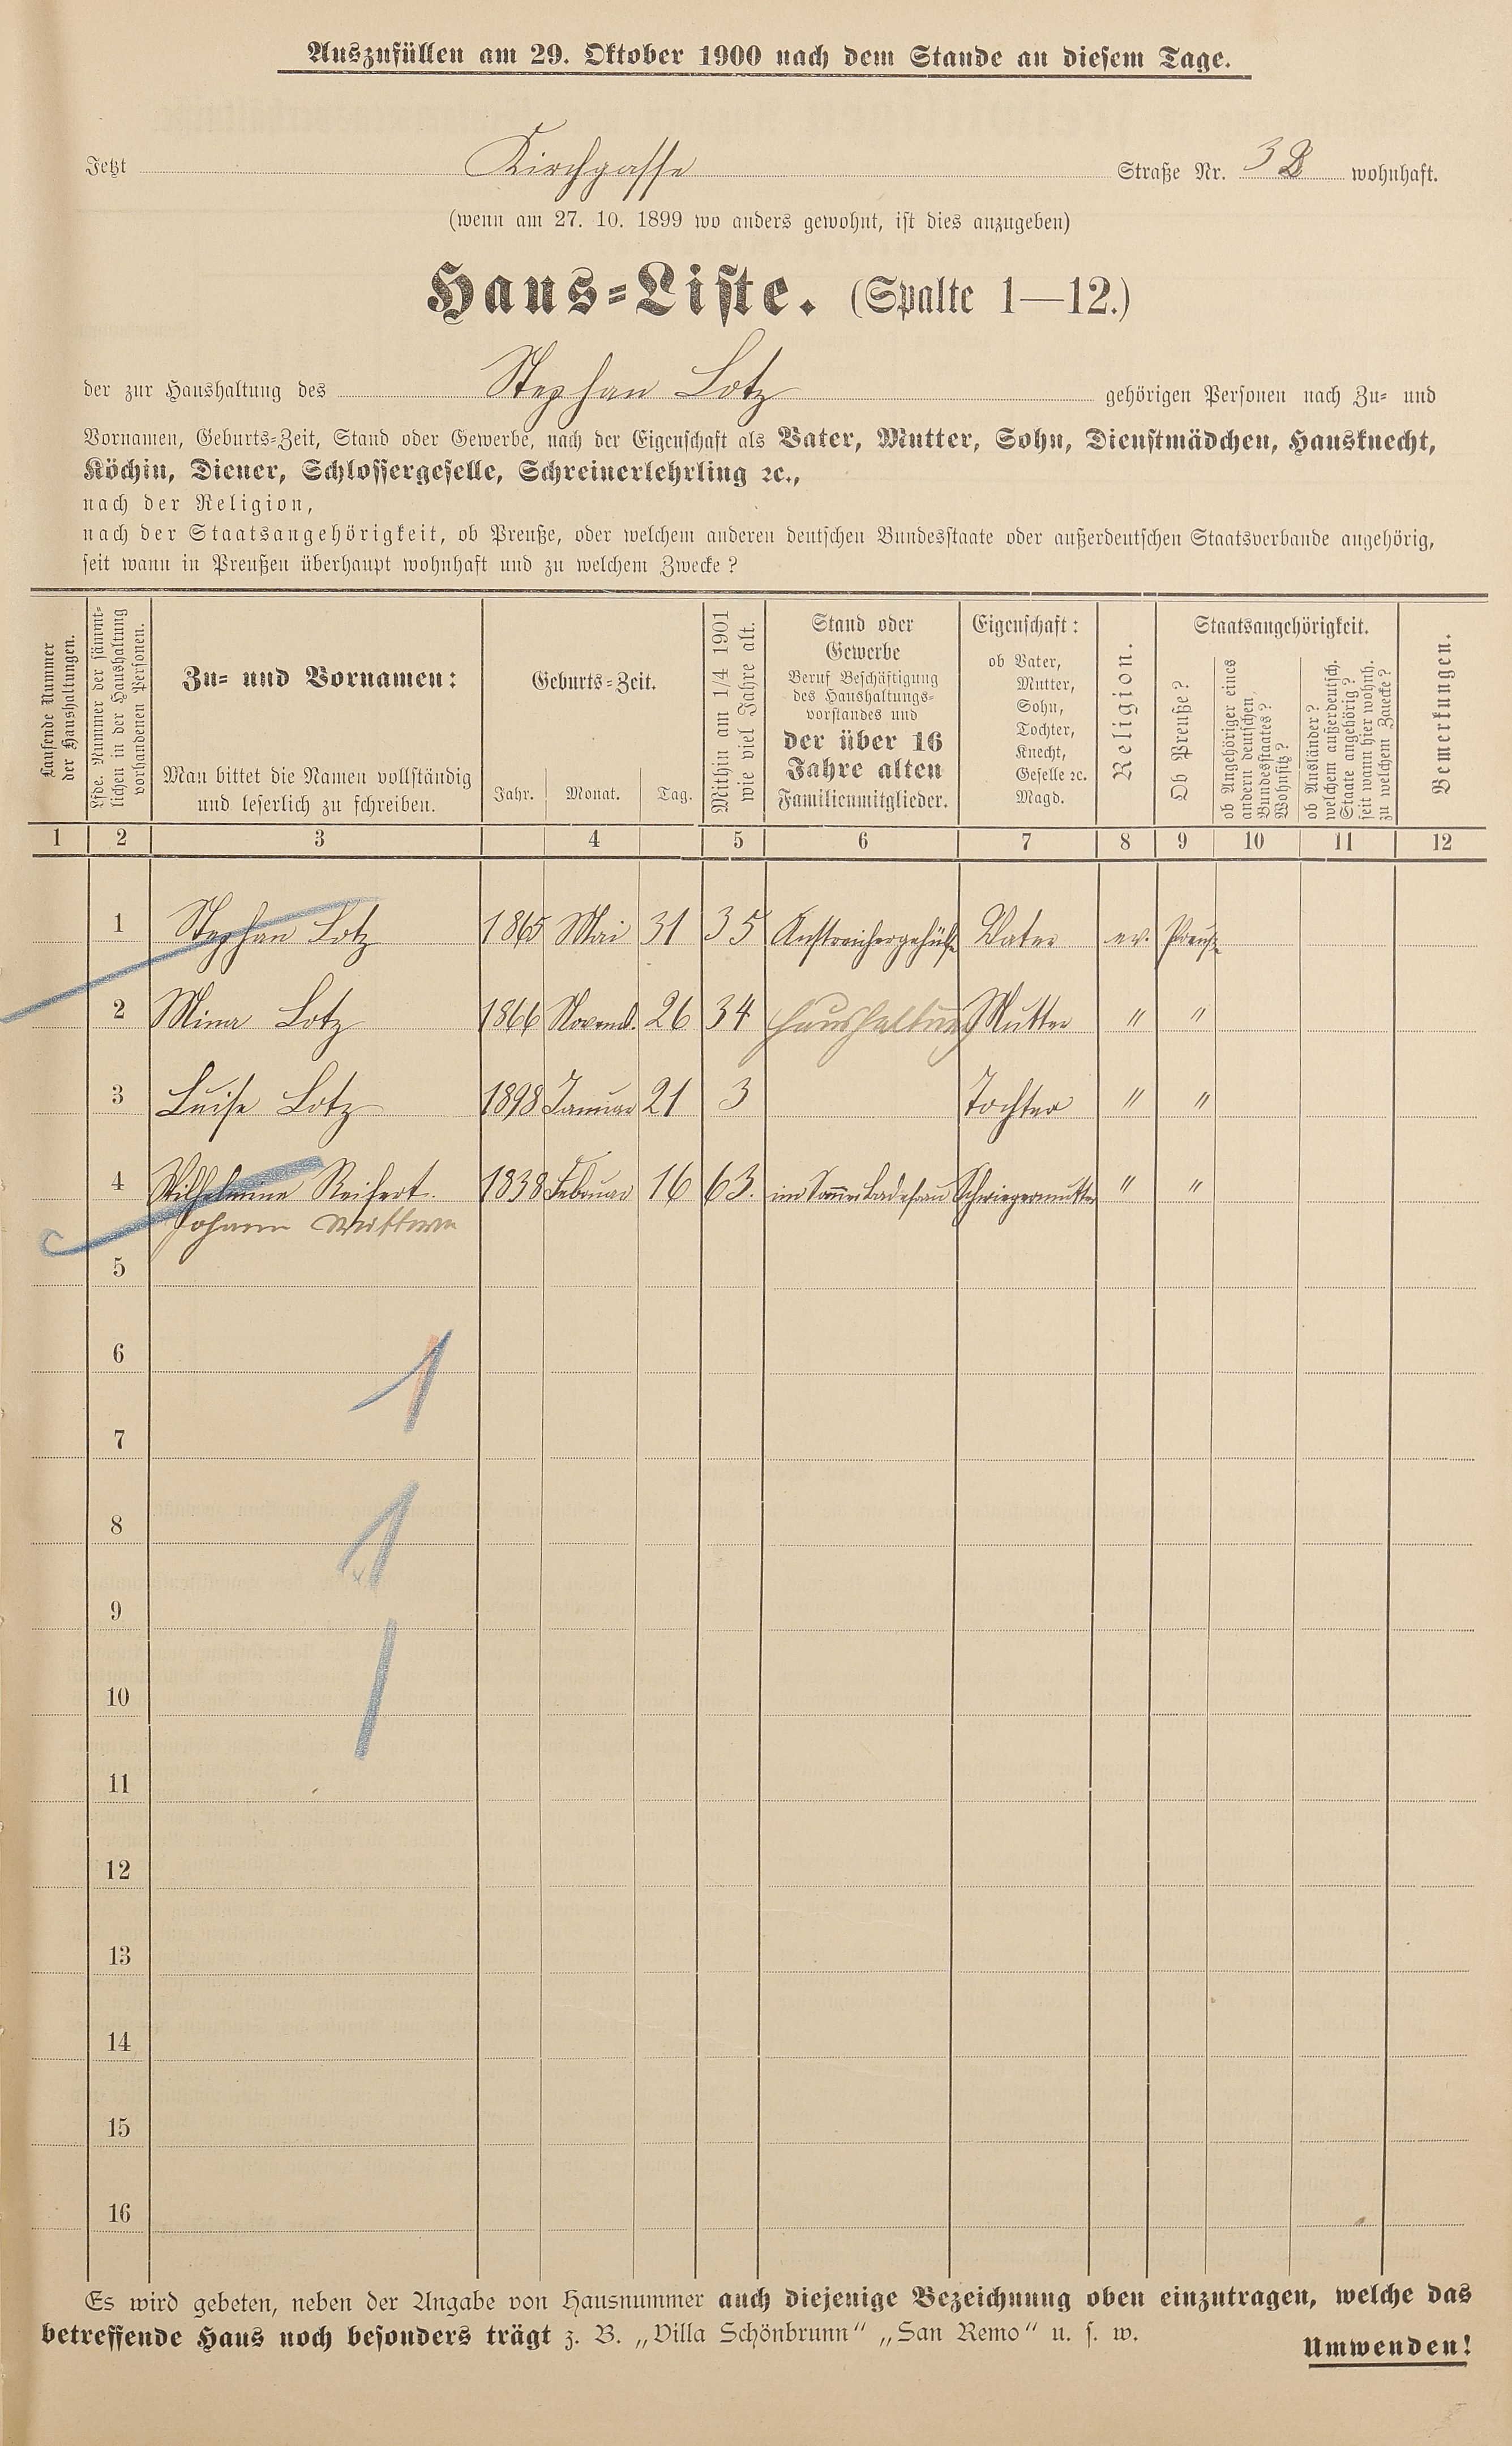 Auszufüllen am 29. Oktober 1900 nach dem Stande an diesem Tage.
Jetzt Kirchgasse Straße Nr. 32 wohnhaft.
(wenn am 27. 10. 1899 wo anders gewohnt, ist dies anzugeben)
Haus-Liste. (Spalte 1—12.)
der zur Haushaltung des Stephan Lotz gehörigen Personen nach Zu- und
Vornamen, Geburts-Zeit, Stand oder Gewerbe, nach der Eigenschaft als Vater, Mutter, Sohn, Dienstmädchen, Hausknecht,
Köchin, Diener, Schlossergeselle, Schreinerlehrling ꝛc.,
nach der Religion,
nach der Staatsangehörigkeit, ob Preuße, oder welchem anderen deutschen Bundesstaate oder außerdeutschen Staatsverbande angehörig,
seit wann in Preußen überhaupt wohnhaft und zu welchem Zwecke?
Laufende Nummer
der Haushaltungen.
Lfde. Nummer der sämmt-
lichen in der Haushaltung
vorhandenen Personen.
Zu- und Vornamen:
Man bittet die Namen vollständig
und leserlich zu schreiben.
Geburts-Zeit.
Jahr. Monat. Tag.
Mithin am 1/4 1901
wie viel Jahre alt.
Stand oder
Gewerbe
Beruf Beschäftigung
des Haushaltungs-
vorstandes und
der über 16
Jahre alten
Familienmitglieder.
Eigenschaft:
ob Vater,
Mutter,
Sohn,
Tochter,
Knecht,
Geselle ꝛc.
Magd.
Religion.
Staatsangehörigkeit.
Ob Preuße?
ob Angehöriger eines
andern deutschen
Bundesstaates?
Wohnsitz?
ob Ausländer?
welchem außerdeutsch.
Staate angehörig?
seit wann hier wohnh.
zu welchem Zwecke?
Bemerkungen.
1 2 3 4 5 6 7 8 9 10 11 12
1 Stephan Lotz 1865 Mai 31 35 Anstreichergehülfe Vater ev. Preuße
2 Mina Lotz 1866 Novemb. 26 34 Haushaltung Mutter " "
3 Luise Lotz 1898 Januar 21 3 Tochter " "
4 Wilhelmine Reifert. 1838 Februar 16 63. im Sommer Badefrau Schwiegermutter " "
Johann Wittwe
5
6
1
7
8
1
9
10
1
11
12
13
14
15
16
Es wird gebeten, neben der Angabe von Hausnummer auch diejenige Bezeichnung oben einzutragen, welche das
betreffende Haus noch besonders trägt z. B. „Villa Schönbrunn“ „San Remo“ u. s. w.
Umwenden!